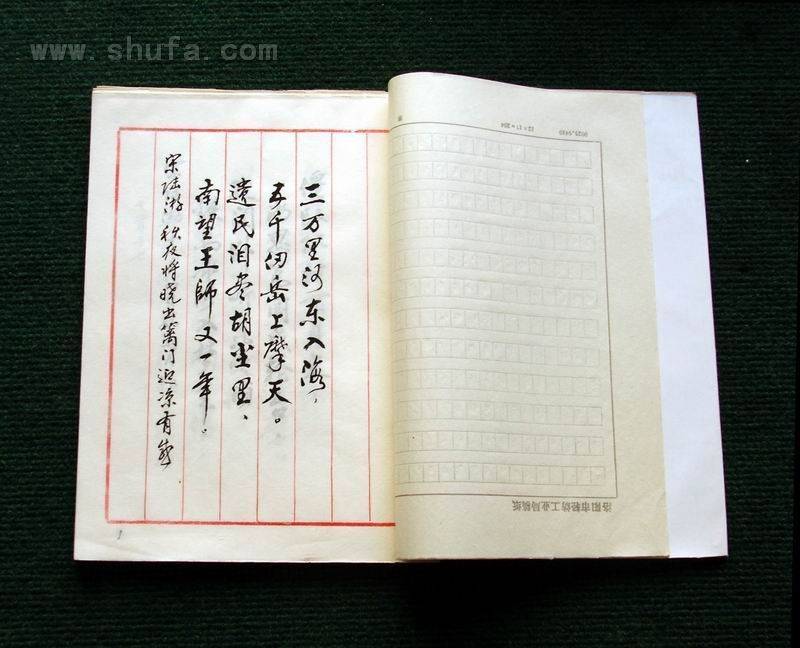 www.shufa.com
三万里河东入海，
五千仞岳上摩天。
遗民泪尽胡尘里、
南望王師又一年。
宋陆游 秋夜将晓出篱门迎凉有感
洛阳市轻纺工业局稿纸
12×17=204